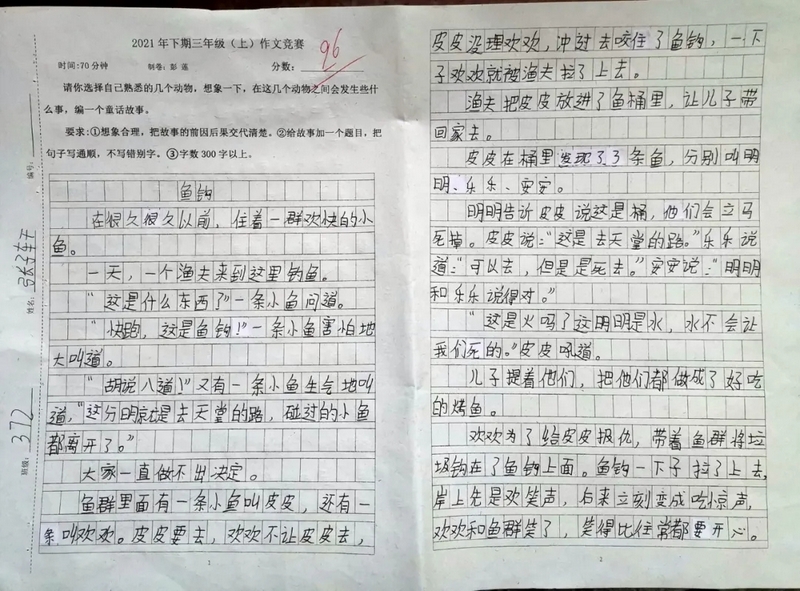 2021年下期三年级（上）作文竞赛
96
时间：70分钟 制卷：彭莲 分数：
请你选择自己熟悉的几个动物，想象一下，在这几个动物之间会发生些什
么事，编一个童话故事。
要求：①想象合理，把故事的前因后果交代清楚。②给故事加一个题目，把
句子写通顺，不写错别字。③字数300字以上。
编号：
姓名：
班级：372
鱼钩
在很久很久以前，住着一群欢快的小
鱼。
一天，一个渔夫来到这里钓鱼。
“这是什么东西？”一条小鱼问道。
“快跑，这是鱼钩！”一条小鱼害怕地
大叫道。
“胡说八道！”又有一条小鱼生气地叫
道，“这分明就是去天堂的路，碰过的小鱼
都离开了。”
大家一直做不出决定。
鱼群里面有一条小鱼叫皮皮，还有一
条叫欢欢。皮皮要去，欢欢不让皮皮去，
1
皮皮没理欢欢，冲过去咬住了鱼钩，一下
子欢欢就被渔夫拉了上去。
渔夫把皮皮放进了鱼桶里，让儿子带
回家去。
皮皮在桶里发现了3条鱼，分别叫明
明、乐乐、安安。
明明告诉皮皮说这是桶，他们会立马
死掉。皮皮说：“这是去天堂的路。”乐乐说
道：“可以去，但是是死去。”安安说：“明明
和乐乐说得对。”
“这是火吗？这明明是水，水不会让
我们死的。”皮皮吼道。
儿子提着他们，把他们都做成了好吃
的烤鱼。
欢欢为了给皮皮报仇，带着鱼群将垃
圾钩在了鱼钩上面。鱼钩一下子拉了上去，
岸上先是欢笑声，后来立刻变成吃惊声，
欢欢和鱼群笑了，笑得比往常都要开心。
2